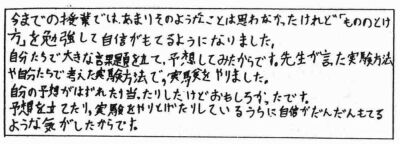 今までの授業では、あまりそのようなことは思わなかったけれど「もののとけ
方」を勉強して自信がもてるようになりました。
自分たちで大きな課題を立て、予想してみたからです。先生が言た実験方法
や自分たちで考えた実験方法で、実験をやりました。
自分の予想がはずれたり当たりしたけどおもしろかったです。
予想を立てたり、実験をやりとげたりしているうちに自信がだんだんもてる
ような気がしたからです。